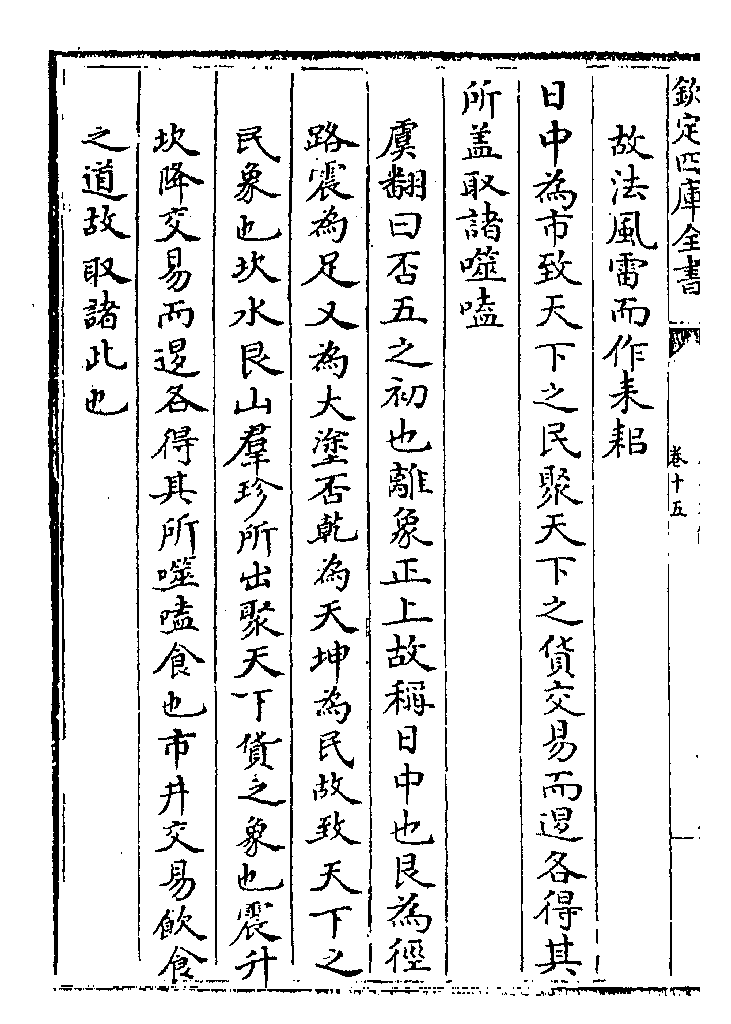 欽定四庫全書
卷十五
故法風雷而作耒耜
日中為市致天下之民聚天下之貨交易而退各得其
所盖取諸噬嗑
虞翻曰否五之初也離象正上故稱日中也艮為徑
路震為足又為大塗否乾為天坤為民故致天下之
民象也坎水艮山羣珍所出聚天下貨之象也震升
坎降交易而退各得其所噬嗑食也市井交易飲食
之道故取諸此也